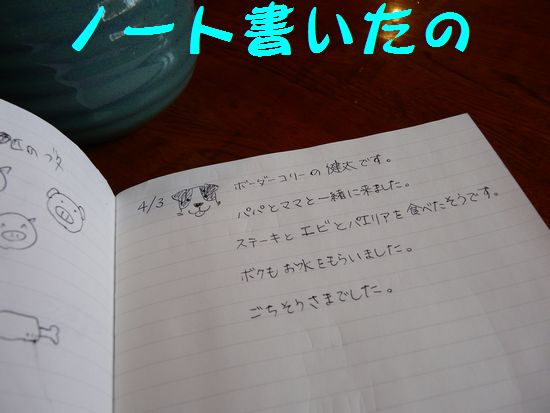 ノート書いたの
匹のブタ
4/3 ボーダーコリーの健太です。
パパとママと一緒に来ました。
ステーキとエビとパエリアを食べたそうです。
ボクもお水をもらいました。
ごちそうさまでした。